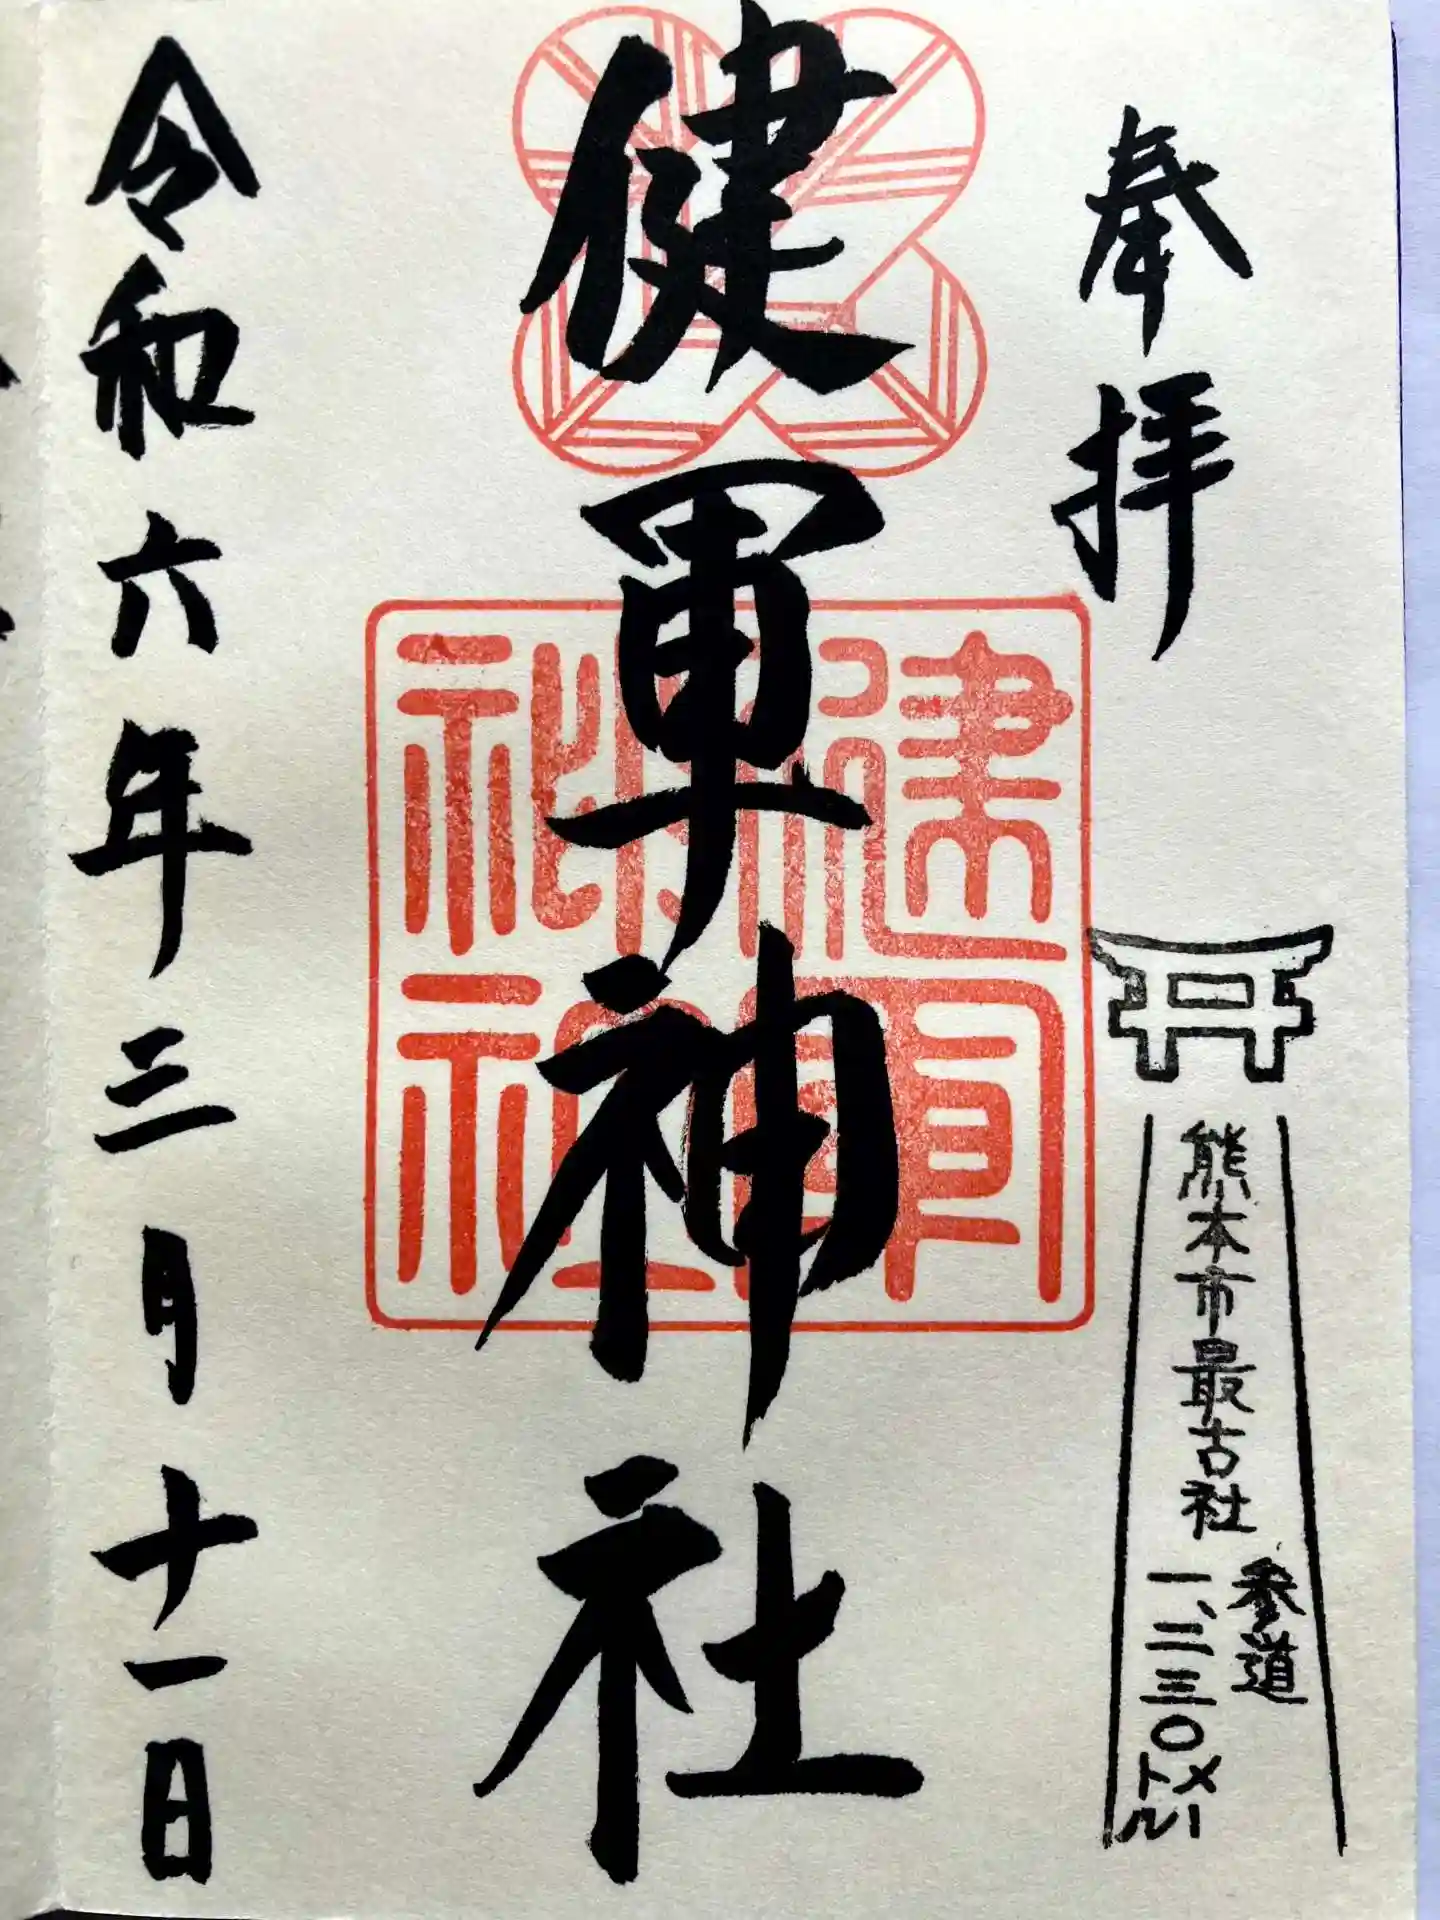 奉拝
熊本市最古社
参道
一、二三〇メートル
健軍神社
健軍
神社
令和六年三月十一日